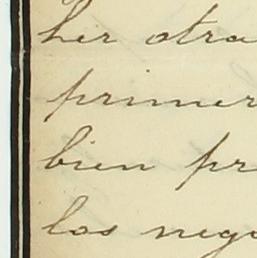 her otra
primer
bien pr
los nego